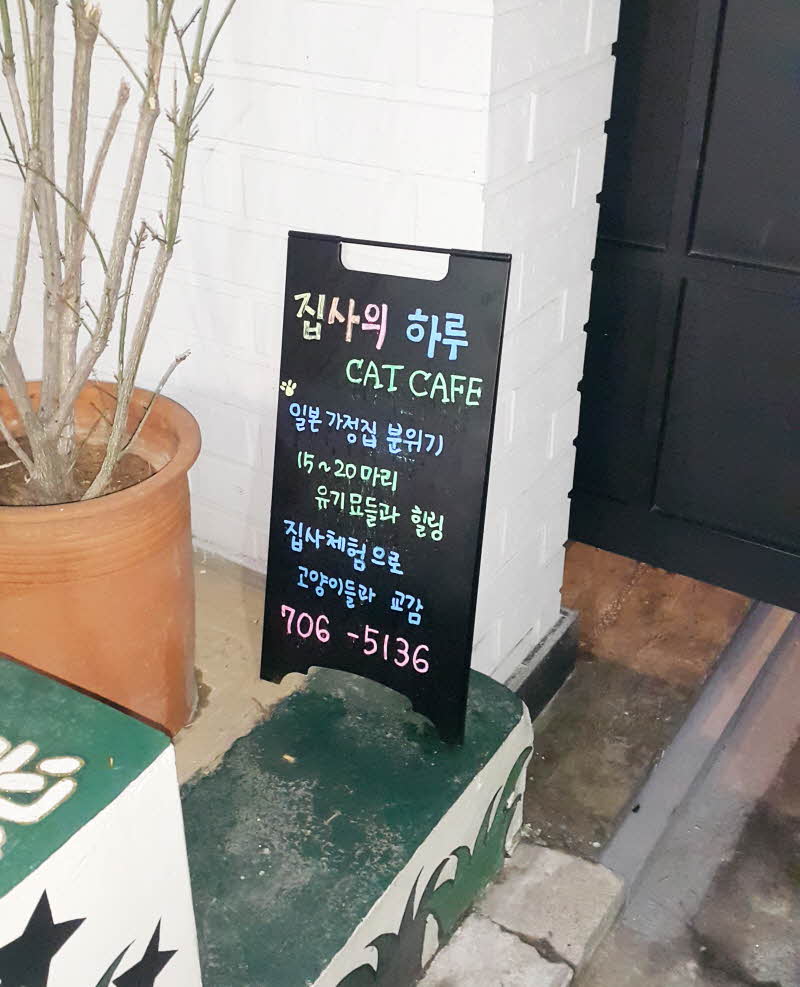 집사의 하루
CAT CAFE
일본 가정집 분위기
15~20마리
유기묘들과 힐링
집사체험으로
고양이들과 교감
706-5136